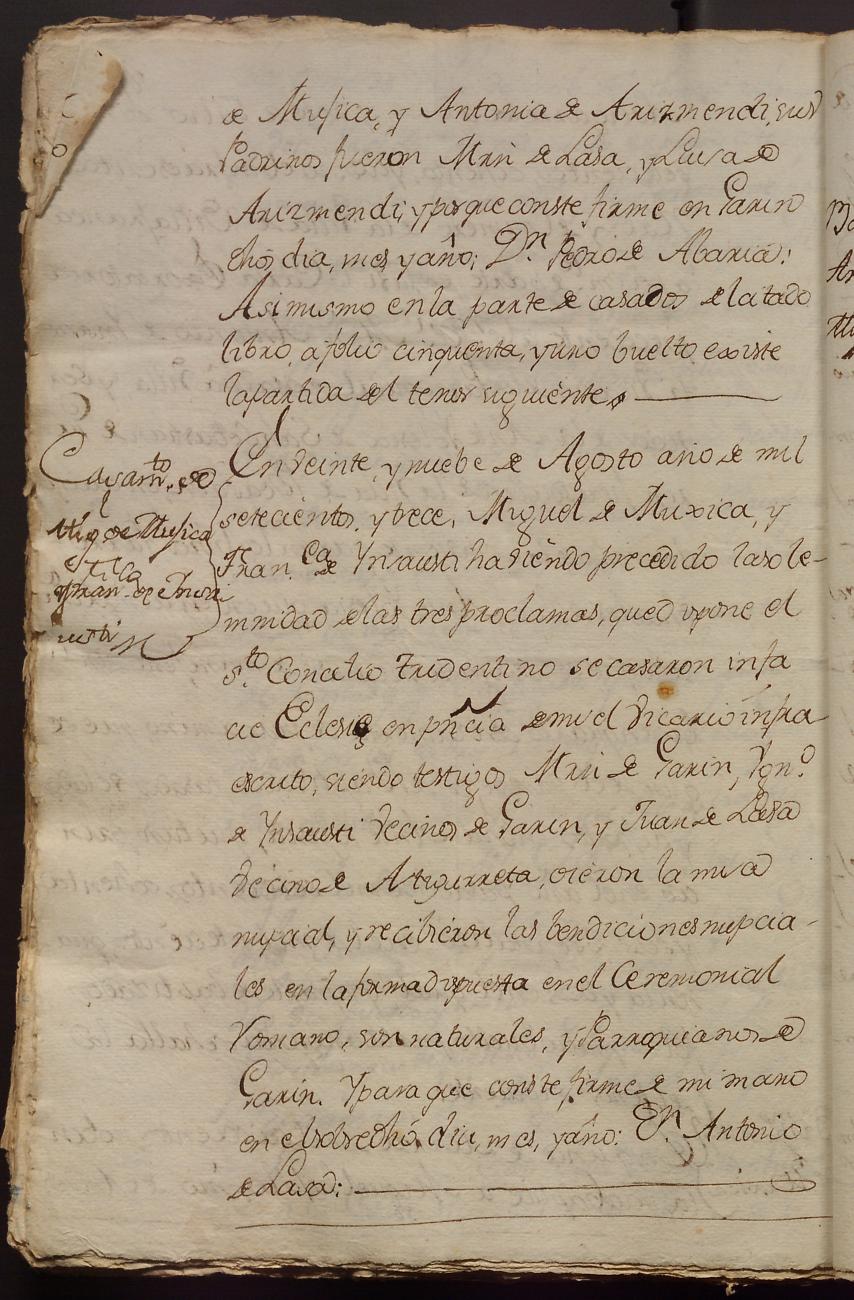 de Mussica, y Antonia de Arizmendi, sus
Padrinos fueron Mrn de Lasa, y Luisa de
Arizmendi, y porque conste firme en Garin
dhos dia, mes y año; Dn. Pedro de Abaria:
Asimismo en la parte de casados del citado
libro, a folio cinquenta, y uno buelto existe
la partida del tenor siguiente,
Casamto. de
Migl de Mussica
y Franca. de Ynsausti
En veinte, y nuebe de Agosto año de mil
setecientos, y trece, Miguel de Muxica, y
Fran.ca de Ynsausti haviendo precedido la sole-
mnidad de las tres proclamas, que dispone el
Sto. Concilio tridentino se casaron in fa
cie Eclesie en pñcia de mi el Vicario infra
escrito, siendo testigos Mrn de Garin, Ygn.o
de Ynsausti vecinos de Garin, y Juan de Lasa
vecino de Astigarreta, oieron la misa
nupcial, y recibieron las bendiciones nupcia-
les en la forma dispuesta en el Ceremonial
Romano, son naturales, y Parroquianos de
Garin. Y para que conste firme de mi mano
en el sobredhõ dia, mes, y año: Dn. Antonio
de Lasa: